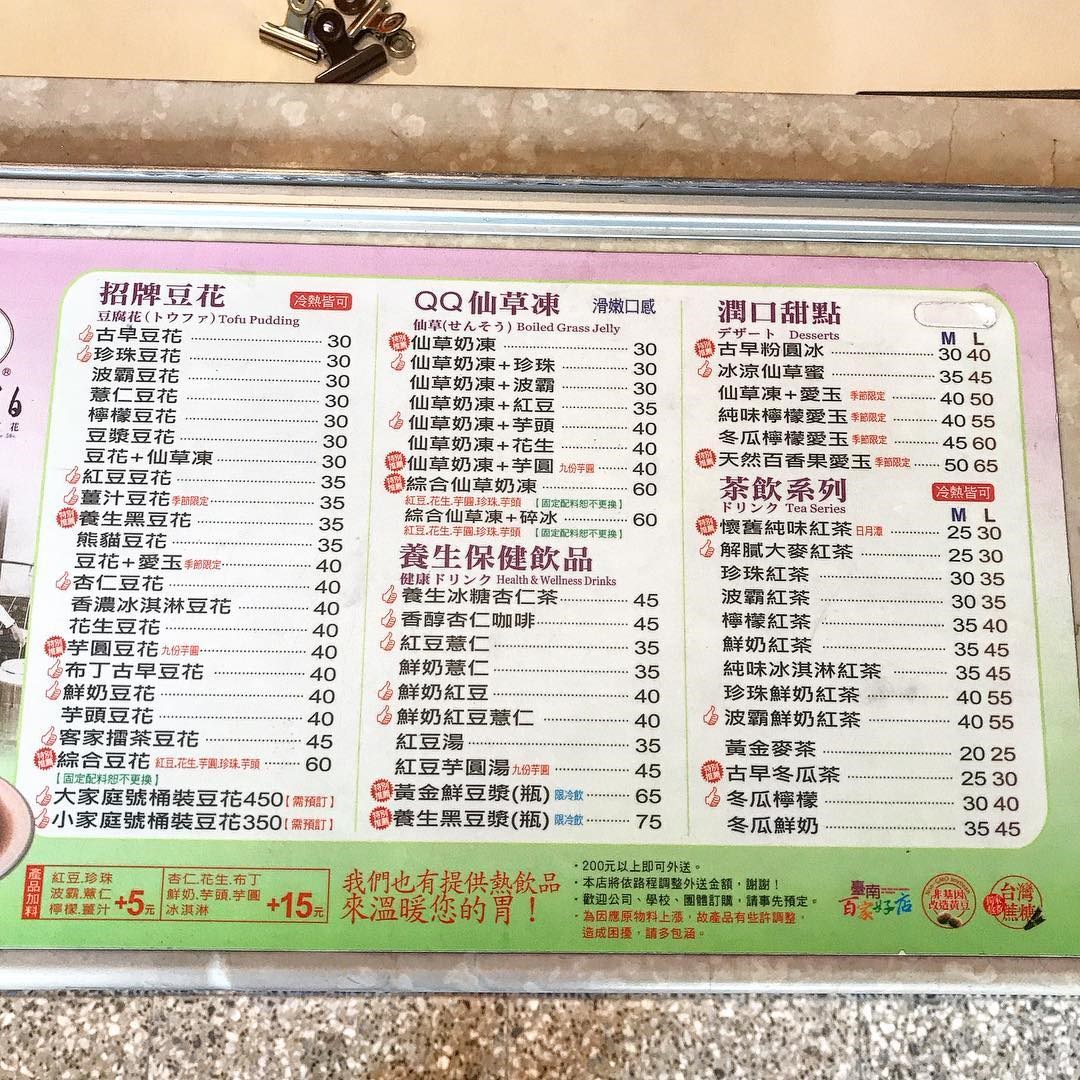 招牌豆花 冷熱皆可
豆腐花(トウファ)Tofu Pudding
古早豆花 30
珍珠豆花 30
波霸豆花 30
薏仁豆花 30
檸檬豆花 30
豆漿豆花 30
豆花+仙草凍 30
紅豆豆花 35
薑汁豆花 季節限定 35
特別推薦 養生黑豆花 35
熊貓豆花 35
豆花+愛玉 季節限定 40
杏仁豆花 40
香濃冰淇淋豆花 40
花生豆花 40
特別推薦 芋圓豆花 九份芋圓 40
布丁古早豆花 40
鮮奶豆花 40
芋頭豆花 40
客家擂茶豆花 45
特別推薦 綜合豆花 紅豆.花生.芋圓.珍珠.芋頭 60
【固定配料恕不更換】
大家庭號桶裝豆花450【需預訂】
小家庭號桶裝豆花350【需預訂】
QQ仙草凍 滑嫩口感
仙草(せんそう) Boiled Grass Jelly
特別推薦 仙草奶凍 30
仙草奶凍+珍珠 30
仙草奶凍+波霸 30
仙草奶凍+紅豆 35
仙草奶凍+芋頭 40
仙草奶凍+花生 40
特別推薦 仙草奶凍+芋圓 九份芋圓 40
特別推薦 綜合仙草奶凍 60
紅豆.花生.芋圓.珍珠.芋頭 【固定配料恕不更換】
綜合仙草凍+碎冰 60
紅豆.花生.芋圓.珍珠.芋頭 【固定配料恕不更換】
養生保健飲品
健康ドリンク Health & Wellness Drinks
養生冰糖杏仁茶 45
香醇杏仁咖啡 45
紅豆薏仁 35
鮮奶薏仁 35
鮮奶紅豆 40
鮮奶紅豆薏仁 40
紅豆湯 35
紅豆芋圓湯 九份芋圓 45
特別推薦 黃金鮮豆漿(瓶) 限冷飲 65
特別推薦 養生黑豆漿(瓶) 限冷飲 75
潤口甜點
デザート Desserts M L
特別推薦 古早粉圓冰 30 40
冰涼仙草蜜 35 45
仙草凍+愛玉 季節限定 40 50
純味檸檬愛玉 季節限定 40 55
冬瓜檸檬愛玉 季節限定 45 60
特別推薦 天然百香果愛玉 季節限定 50 65
茶飲系列 冷熱皆可
ドリンク Tea Series M L
特別推薦 懷舊純味紅茶 日月潭 25 30
解膩大麥紅茶 25 30
珍珠紅茶 30 35
波霸紅茶 30 35
檸檬紅茶 35 40
鮮奶紅茶 35 45
純味冰淇淋紅茶 35 45
珍珠鮮奶紅茶 40 55
波霸鮮奶紅茶 40 55
黃金麥茶 20 25
特別推薦 古早冬瓜茶 25 30
冬瓜檸檬 30 40
冬瓜鮮奶 35 45
產品加料
紅豆.珍珠
波霸.薏仁
檸檬.薑汁 +5元
杏仁.花生.布丁
鮮奶.芋頭.芋圓
冰淇淋 +15元
我們也有提供熱飲品
來溫暖您的胃！
・200元以上即可外送。
・本店將依路程調整外送金額，謝謝！
・歡迎公司、學校、團體訂購，請事先預定。
・為因應原物料上漲，故產品有些許調整，
造成困擾，請多包涵。
臺南
百家好店
非基因
改造黃豆
台灣
蔗糖